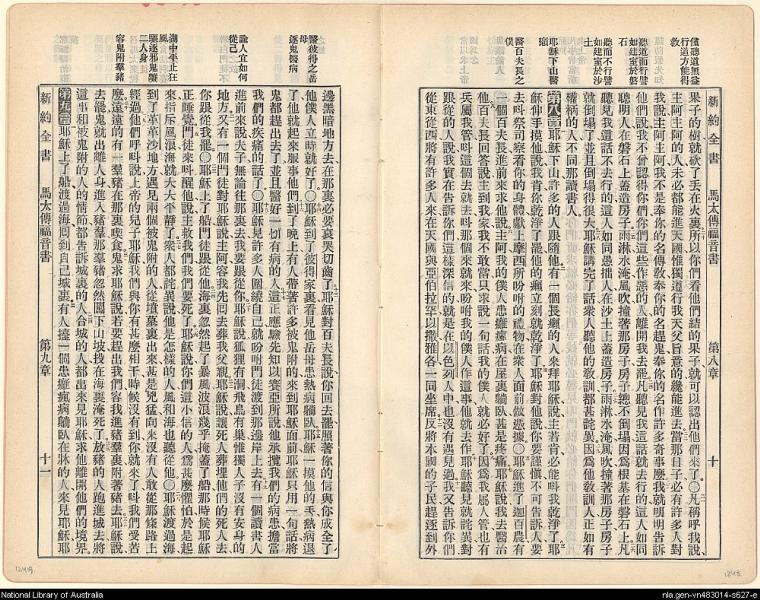 新約全書 馬太傳福音書 第八章 十
僅聽道無益
行道方能得
救
聽道而行譬
如建室於磐
石
聽而不行譬
如建室於沙
土
耶穌下山醫
癩
醫百夫長之
僕
果子的樹就砍了丟在火裏所以你們看他們結的果子就可以認出他們來了○凡稱呼我說
主阿主阿的人未必都能進天國惟獨遵行我天父旨意的纔能進去當那日子必有許多人對
我說主阿主阿我不是奉你的名傳教奉你的名趕鬼奉你的名作許多奇事麼我就明明告訴
他們說我不曾認得你們你們這些作惡的人離開我去罷凡聽見我這話就去行的這人如同
聰明人在磐石上蓋造房子雨淋水淹風吹撞著那房子房子總不倒塌因為根基在磐石上凡
聽見我這話不去行的這人如同愚拙人在沙土上蓋造房子雨淋水淹風吹撞著那房子房子
就倒塌了並且倒塌得很大耶穌講完了話衆人聽他的敎訓都甚詫異因為他敎訓人正如有
權柄的人不同那讀書人
第八章耶穌下山許多的人跟隨他有一個長癩的人來拜耶穌說主若肯必能叫我乾淨了耶
穌伸手摸他說我肯你乾淨了罷他的癩立刻就乾淨了耶穌對他說你要謹愼不可告訴人要
去叫祭司察看你的身體獻上摩西所吩咐的禮物在衆人面前做憑據○耶穌進了迦百農有
一個百夫長進前來求他說主阿我的僕人患癱瘋病在屋裏躺臥甚是疼痛耶穌說我去醫治
他百夫長回答說主到我家我不敢當只求說一句話我的僕人就必好了因為我屬人管也有
兵屬我管叫這個去就去叫那個來就來吩咐我的僕人作這事他就去作耶穌聽見就詫異對
跟從的人說我實在告訴你們這樣深信的就是在以色列人中也沒有遇見過我又告訴你們
從東從西將有許多人來在天國與亞伯拉罕以撒雅各一同坐席反將本國的子民趕逐到外
醫彼得之岳
母
逐鬼醫病
論人宜如何
從己
湖中平止狂
風
驅逐邪鬼醫
二人身
容鬼附羣豬
邊黑暗地方去在那裏必要哀哭切齒了耶穌對百夫長說你回去罷照著你的信與你成全了
他僕人立時就好了○耶穌到了彼得家裏看見他岳母患熱病躺臥耶穌一摸他的手熱病退
了他就起來服事他們到了晚上有人帶著許多被鬼附的來到耶穌面前耶穌只用一句話將
鬼都趕出去了並且醫好一切有病的人這正應驗先知以賽亞所說他承攬我們的病患擔當
我們的疾痛的話了○耶穌見許多人圍繞自己就吩咐門徒渡到那邊岸上去有一個讀書人
進前來說夫子無論往那裏去我要跟從你耶穌說狐狸有洞飛鳥有巢惟獨人子沒有安身的
地方又有一個門徒對耶穌說主阿容我先回去葬我父親耶穌說讓死人葬埋他們的死人去
你跟從我罷○耶穌上了船門徒跟從他海裏忽然起了暴風波浪幾乎掩蓋了船那時候耶穌
正睡覺門徒來叫醒他說主救我們我們要死了耶穌說你們這小信的人爲甚麼懼怕於是起
來指斥風浪海就大大平靜了衆人都詫異說他是怎樣的人風和海也聽從他○耶穌渡過海
到了革革沙地方遇見兩個被鬼附的人從墳墓裏出來甚是兇猛向來沒有人敢從那條路上
經過他們呼叫說上帝的兒子耶穌我們與你有甚麼相干時候沒有到你就來了叫我們受苦
麼遠遠的有一羣豬在那裏喫食鬼求耶穌說若要趕出我們容我進豬羣裏附著豬去耶穌說
去罷鬼就出離人身進入豬羣那羣豬忽然闖下山坡投在海裏淹死了放豬的人跑進城去將
這事和被鬼附的人的情節都告訴城裏的人合城的人都出來見耶穌求他離開他們的境界
第九章耶穌上了船渡過海回到自己城裏有人擡一個患癱瘋病躺臥在牀的人來見耶穌耶
新約全書 馬太傳福音書 第九章 十一
National Library of Australia
nla.gen-vn483014-s627-e